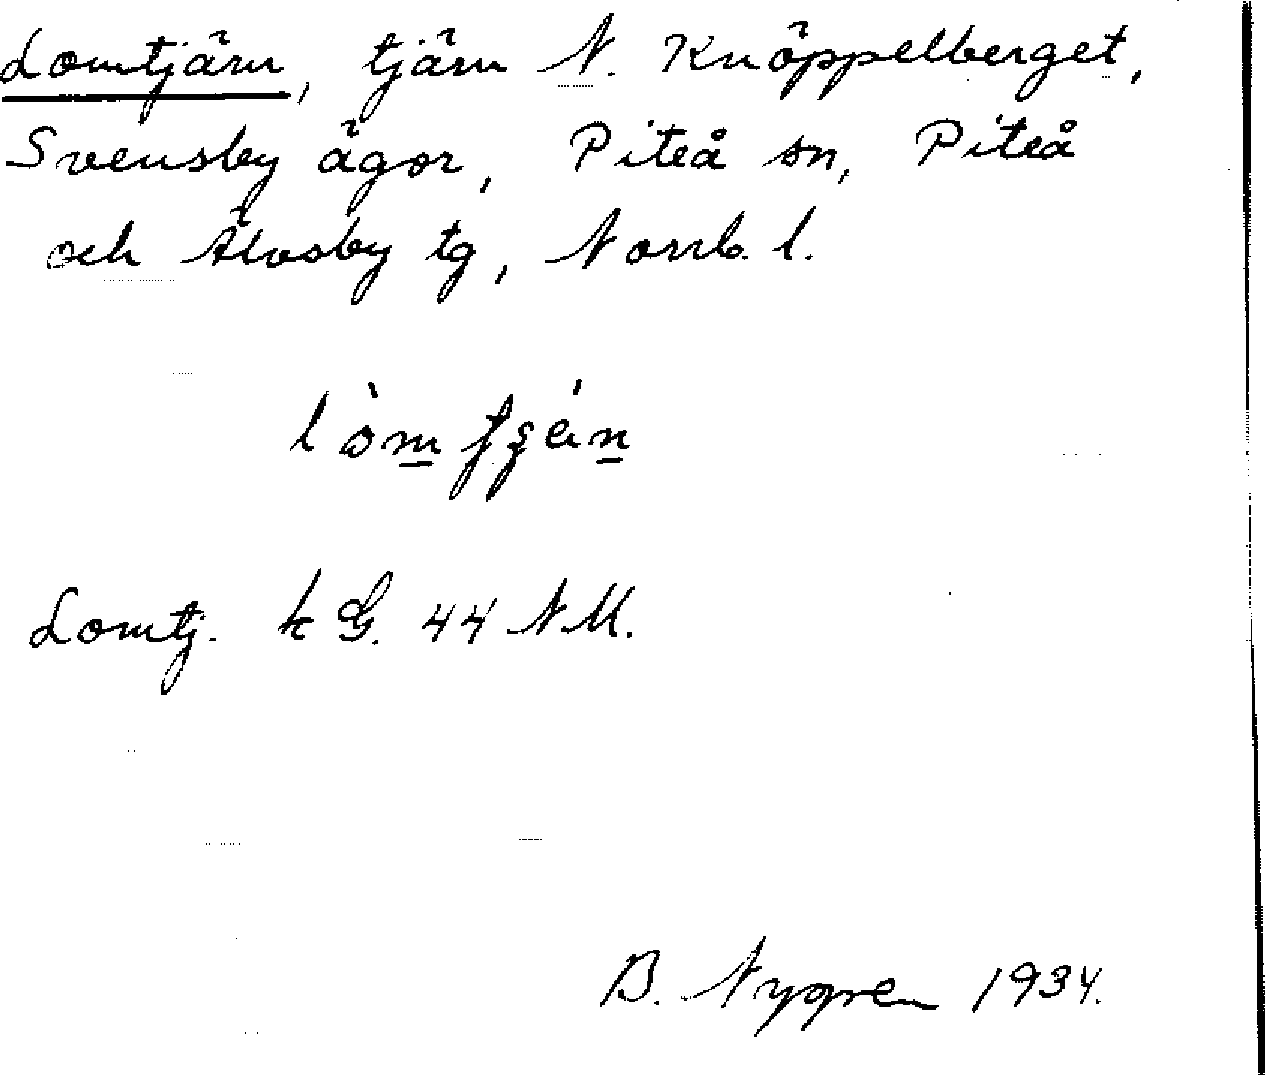 Lomtjärn, tjärn N. Knöppelberget,
Svensby ägor, Piteå sn, Piteå
och Älvsby tg, Norrb. l.
Lomtj. k G. 44 NM.
B. Nygren 1934.